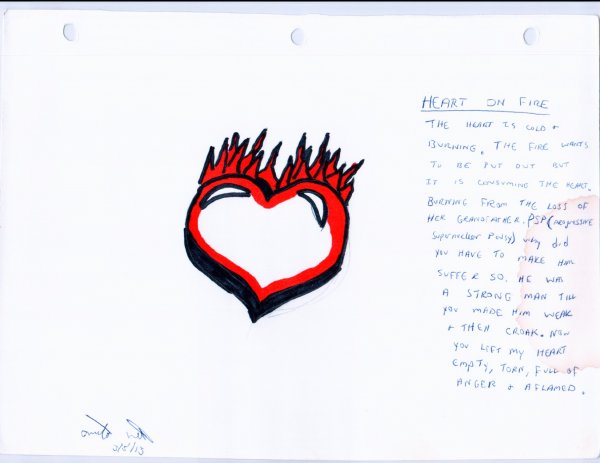 HEART ON FIRE
THE HEART IS COLD +
BURNING. THE FIRE WANTS
TO BE PUT OUT BUT
IT IS CONSUMING THE HEART.
BURNING FROM THE LOSS OF
HER GRANDFATHER. PSP (PROGRESSIVE
SUPERNUCLEAR PALSY) why did
YOU HAVE TO MAKE HIM
SUFFER SO. HE WAS
A STRONG MAN TILL
YOU MADE HIM WEAK
+ THEN CROAK. NOW
YOU LIFT MY HEART
EMPTY, TORN, FULL OF
ANGER + AFLAMED.